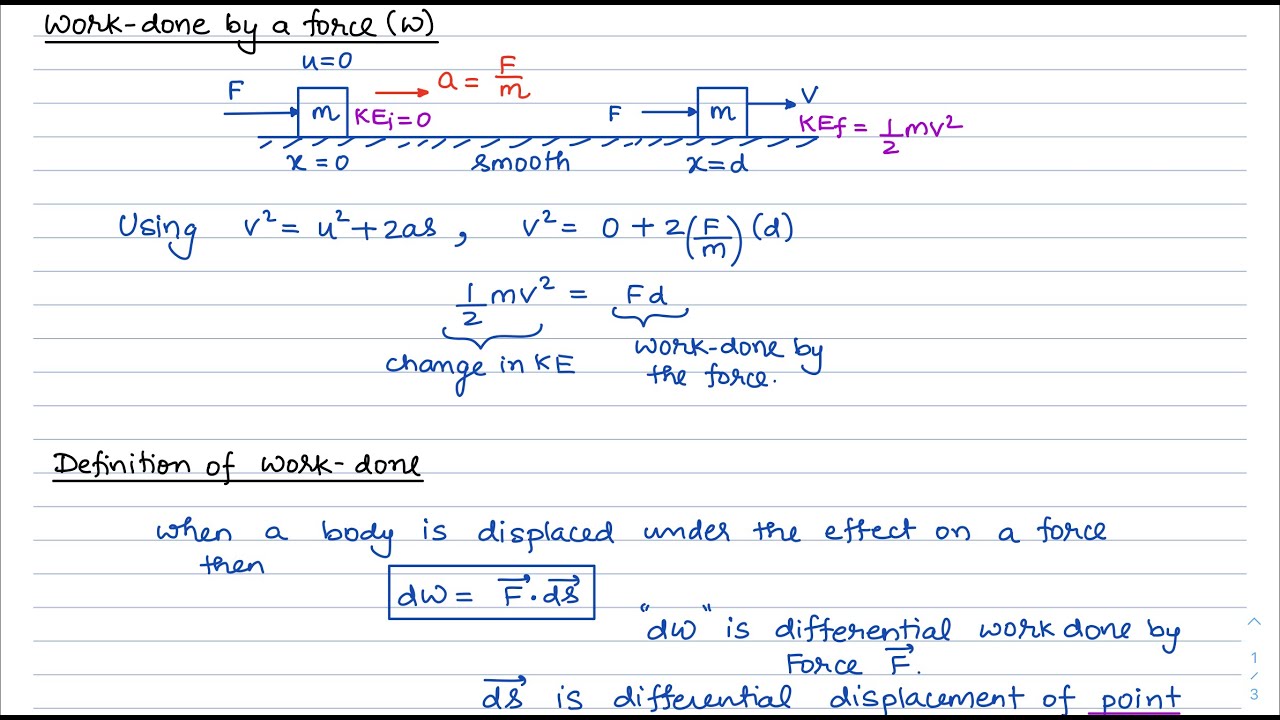 Work-done by a force (W)
u=0
F m a = F/m
KEi=0
F m V
KEf = 1/2 mv²
x=0 smooth x=d
Using v² = u² + 2as , v² = 0 + 2(F/m)(d)
1/2 mv² = Fd
change in KE
work-done by
the force.
Definition of work-done
when a body is displaced under the effect on a force
then
dw = F⃗ . ds⃗
"dw" is differential work done by
Force F⃗.
ds⃗ is differential displacement of point
1
/
3